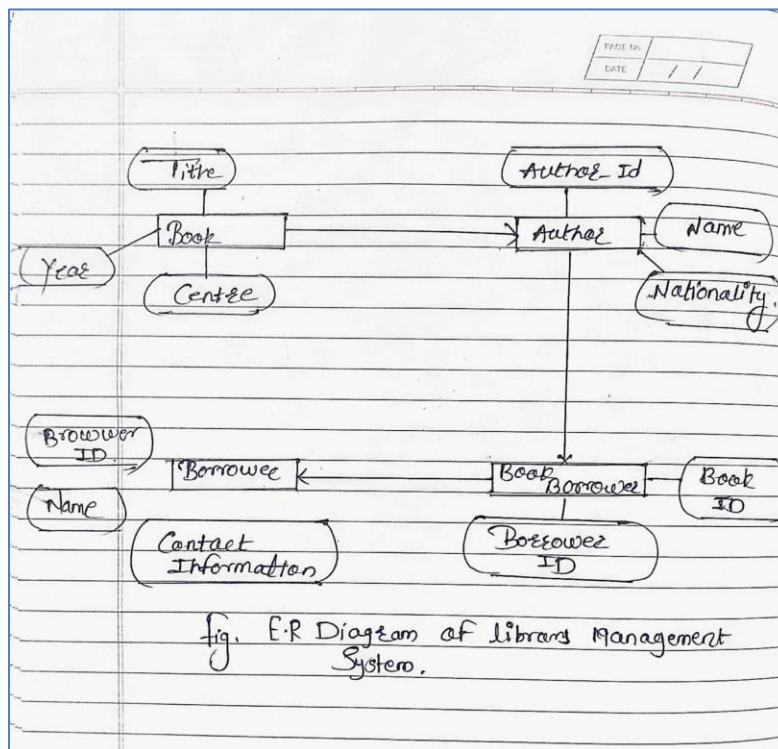 PAGE No.
DATE / /
Title
Author Id
Book
Author
Name
Year
Centre
Nationality
Browwer
ID
Borrower
Book
Borrower
Book
ID
Name
Contact
Information
Borrower
ID
fig. E.R Diagram of librans Management
System.